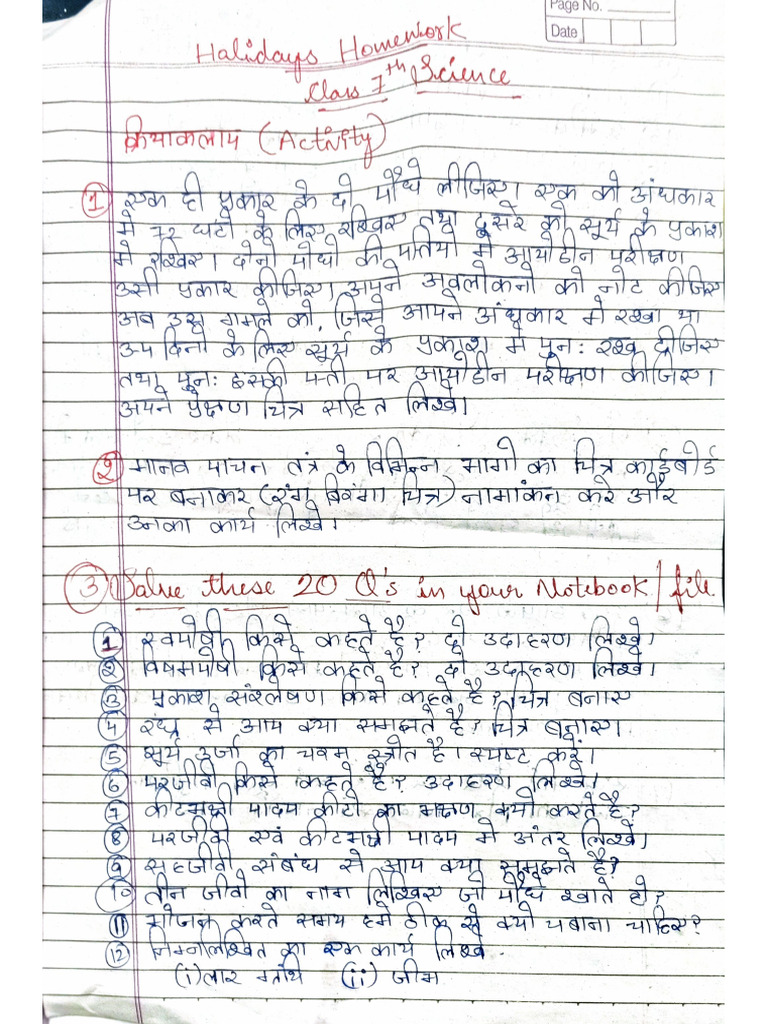 Page No.
Date
Halidays Homework
Class 7th Science
क्रियाकलाप (Activity)
① एक ही प्रकार के दो पौधे लीजिए। एक को अंधकार
मे 72 घंटो के लिए रखिए तथा दूसरे को सूर्य के प्रकाश
मे रखिए। दोनो पौधो की पतियो मे आयोडीन परीक्षण
उसी प्रकार कीजिए। अपने अवलोकनो को नोट कीजिए
अब उस गमले को, जिसे आपने अंधकार मे रखा था
3-4 दिनो के लिए सूर्य के प्रकाश मे पुन: रख दीजिए
तथा पुन: इसकी पत्ती पर आयोडीन परीक्षण कीजिए।
अपने प्रेक्षण चित्र सहित लिखे।
② मानव पाचन तंत्र के विभिन्न भागो का चित्र कार्डबोर्ड
पर बनाकर (रंग बिरंगा चित्र) नामांकन करे और
उनका कार्य लिखे।
③ Solve these 20 Q's in your Notebook/file.
① स्वपोषी किसे कहते है? दो उदाहरण लिखे।
② विषमपोषी किसे कहते है? दो उदाहरण लिखे।
③ प्रकाश संश्लेषण किसे कहते है? चित्र बनाए
④ रंध्र से आप क्या समझते है? चित्र बनाए।
⑤ सूर्य उर्जा का चरम स्त्रोत है। स्पष्ट करें।
⑥ परजीवी किसे कहते है? उदाहरण लिखे।
⑦ कीटभक्षी पादप कीटो का भक्षण क्यो करते है?
⑧ परजीवी एवं कीटभक्षी पादप मे अंतर लिखे।
⑨ सहजीवी संबंध से आप क्या समझते है?
⑩ तीन जीवो का नाम लिखिए जो पौधे खाते हो?
⑪ भोजन करते समय हमे ठीक से क्यो चबाना चाहिए?
⑫ निम्नलिखित का एक कार्य लिखे
(i) लार ग्रंथि (ii) जीभ